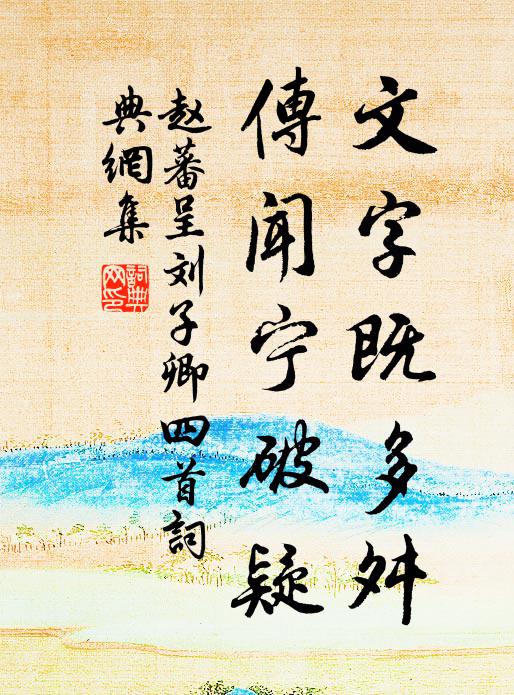 文字既多舛
傳闻宁破疑
赵蕃呈刘子卿四首詞
典網集
詞典
网印